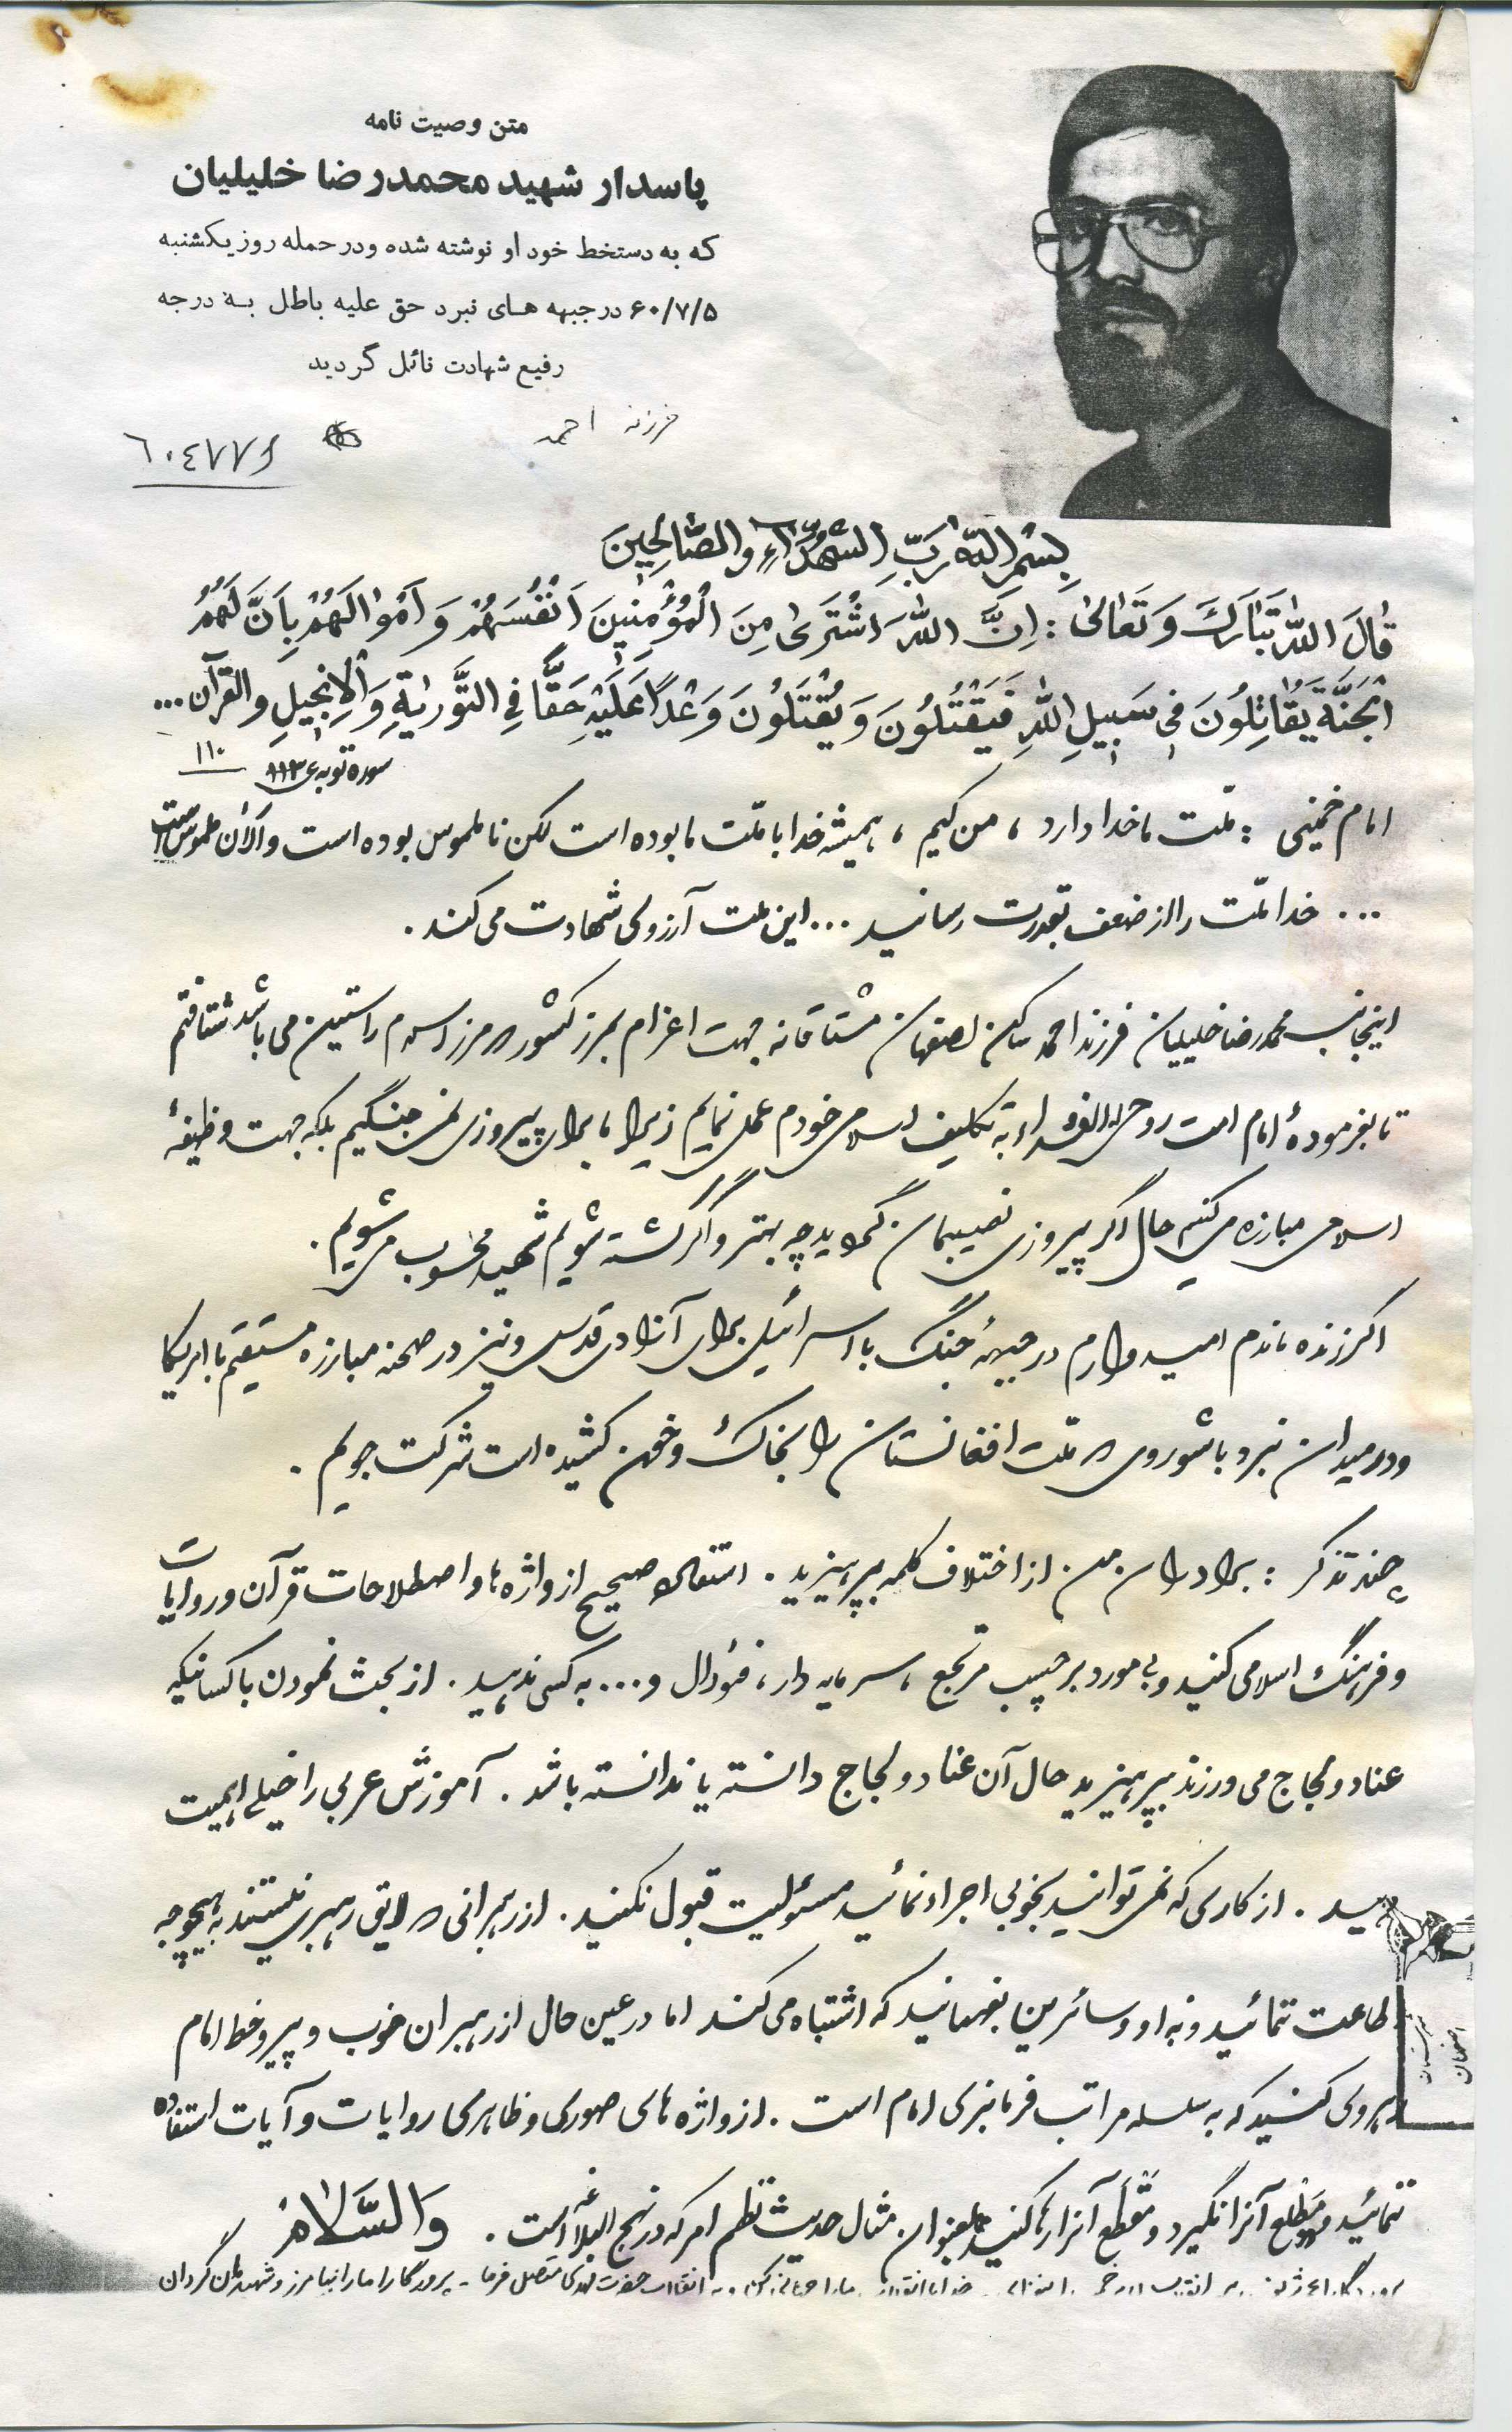 متن وصیت نامه
پاسدار شهید محمدرضا خلیلیان
که به دستخط خود او نوشته شده ودر حمله روز یکشنبه
۶۰/۷/۵ درجبهه های نبرد حق علیه باطل به درجه
رفیع شهادت نائل گردید
فرزند احمد
بِسْمِ اللهِ رَبِّ الشُّهَدَاءِ وَالصَّالِحِینَ
قَالَ اللهُ تَبَارَكَ وَتَعَالىٰ : اِنَّ اللهَ اشْتَرىٰ مِنَ الْمُؤْمِنِينَ اَنْفُسَهُمْ وَ اَمْوٰالَهُمْ بِاَنَّ لَهُمُ
الْجَنَّةَ يُقَاتِلُونَ فِي سَبِيلِ اللهِ فَيَقْتُلُونَ وَ يُقْتَلُونَ وَعْداً عَلَيْهِ حَقًّا فِي التَّوْرٰيةِ وَالْاِنْجِيلِ والقرآن ...
سوره توبه ی ۱۱۲
۱۱۰
امام خمینی : ملّت ما خدا دارد ، من کیم ، همیشه خدا با ملّت ما بوده است لکن ناملموس بوده است و الان ملموس است
... خدا ملّت را از ضعف بقدرت رسانید ... این ملت آرزوی شهادت می کند .
اینجانب محمدرضا خلیلیان فرزند احمد ساکن اصفهان مشتاقانه جهت اعزام بمرز کشور که مرز اسلام راستین می باشد شتافتم
تا بفرمودهٔ امام امت روحی له الفداء به تکلیف اسلامی خودم عمل نمایم زیرا ما برای پیروزی نمی جنگیم بلکه جهت وظیفهٔ
اسلامی مبارزه می کنیم حال اگر پیروزی نصیبمان گردید چه بهتر و اگر کشته شویم شهید محسوب می شویم .
اگر زنده ماندم امیدوارم در جبههٔ جنگ با اسرائیل برای آزادی قدس و نیز در صحنه مبارزه مستقیم با امریکا
ودر میدان نبرد با شوروی که ملّت افغانستان را بخاک و خون کشیده است شرکت جویم .
چند تذکر : برادران من از اختلاف کلمه بپرهیزید . استفاده صحیح از واژه ها و اصطلاحات قرآن و روایات
و فرهنگ اسلامی کنید و بی مورد برچسب مرتجع ، سرمایه دار ، فئودال و ... به کسی ندهید . از بحث نمودن با کسانیکه
عناد و لجاج می ورزند بپرهیزید حال آن عناد و لجاج دانسته یا ندانسته باشد . آموزش عربی را خیلی اهمیت
دهید . از کاری که نمی توانید بخوبی اجراء نمائید مسئولیت قبول نکنید . از رهبرانی که لایق رهبری نیستند به هیچوجه
اطاعت ننمائید و به او و سائرین بفهمانید که اشتباه می کند اما در عین حال از رهبران خوب و پیرو خط امام
پیروی کنید که به سلسله مراتب فرمانبری امام است . از واژه های صوری و ظاهری روایات و آیات استفاده
ننمائید مطلع آنرا نگیرد و مقطع آنرا رها کنید بعنوان مثال حدیث نظم امر که در نهج البلاغه است . وَالسَّلَام
خدایا انقلاب ما را به انقلاب حضرت مهدی متصل فرما - پروردگارا ما را بیامرز و شهیدمان گردان
اصفهان